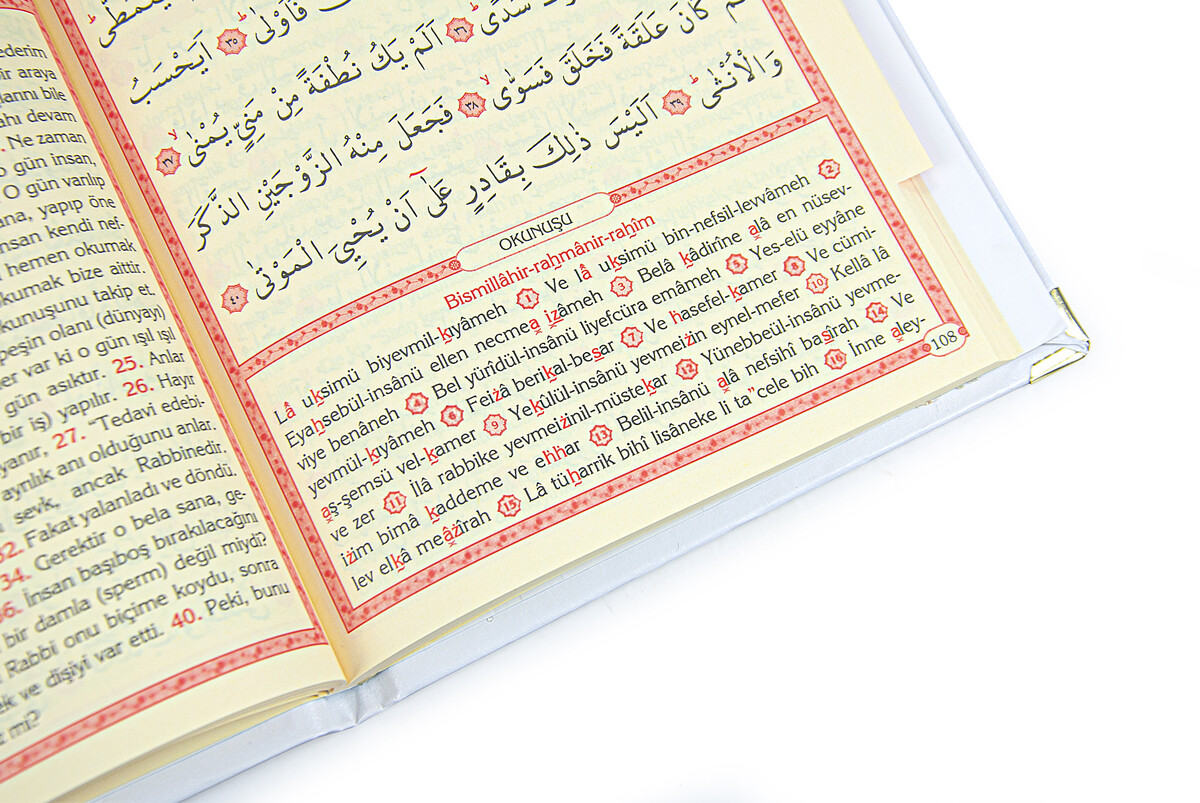 ederim
bir araya
larını bile
ahı devam
. Ne zaman
o gün insan,
O gün varılıp
ana, yapıp öne
insan kendi nef-
hemen okumak
kumak bize aittir.
kunuşunu takip et.
peşin olanı (dünyayı)
er var ki o gün ışıl ışıl
gün asıktır. 25. Anlar
bir iş) yapılır. 26. Hayır
yanır, 27. “Tedavi edebi-
ayrılık anı olduğunu anlar.
sevk, ancak Rabbinedir.
32. Fakat yalanladı ve döndü.
34. Gerektir o bela sana, ge-
36. İnsan başıboş bırakılacağını
bir damla (sperm) değil miydi?
Rabbi onu biçime koydu, sonra
ek ve dişiyi var etti. 40. Peki, bunu
mi?
يَتَمَطّٰىۜ
فَاَوْلٰىۜ ﴿٣٥﴾ اَيَحْسَبُ
سُدًىۜ ﴿٣٦﴾ اَلَمْ يَكُ نُطْفَةً مِنْ مَنِيٍّ يُمْنٰىۙ ﴿٣٧﴾
كَانَ عَلَقَةً فَخَلَقَ فَسَوّٰىۙ ﴿٣٨﴾ فَجَعَلَ مِنْهُ الزَّوْجَيْنِ الذَّكَرَ
وَالْاُنْثٰىۜ ﴿٣٩﴾ اَلَيْسَ ذٰلِكَ بِقَادِرٍ عَلٰٓى اَنْ يُحْيِيَ الْمَوْتٰى ﴿٤٠﴾
OKUNUŞU
Bismillâhir-raḥmânir-raḥîm
Lâ uḳsimü biyevmil-ḳıyâmeh 1 Ve lâ uḳsimü bin-nefsil-levvâmeh 2
Eyaḥsebül-insânü ellen necmea ızâmeh 3 Belâ ḳâdirîne alâ en nüsev-
viye benâneh 4 Bel yürîdül-insânü liyefcüra emâmeh 5 Yes-elü eyyâne
yevmül-ḳıyâmeh 6 Feiżâ beriḳal-beṣar 7 Ve hasefel-ḳamer 8 Ve cümi-
aş-şemsü vel-ḳamer 9 Yeḳûlül-insânü yevmeiżin eynel-mefer 10 Kellâ lâ
ve zer 11 İlâ rabbike yevmeiżinil-müsteḳar 12 Yünebbeül-insânü yevme-
iżim bimâ ḳaddeme ve ehhar 13 Belil-insânü alâ nefsihî baṣîrah 14 Ve
lev elḳâ meâżîrah 15 Lâ tüḥarrik bihî lisâneke li ta”cele bih 16 İnne aley-
108